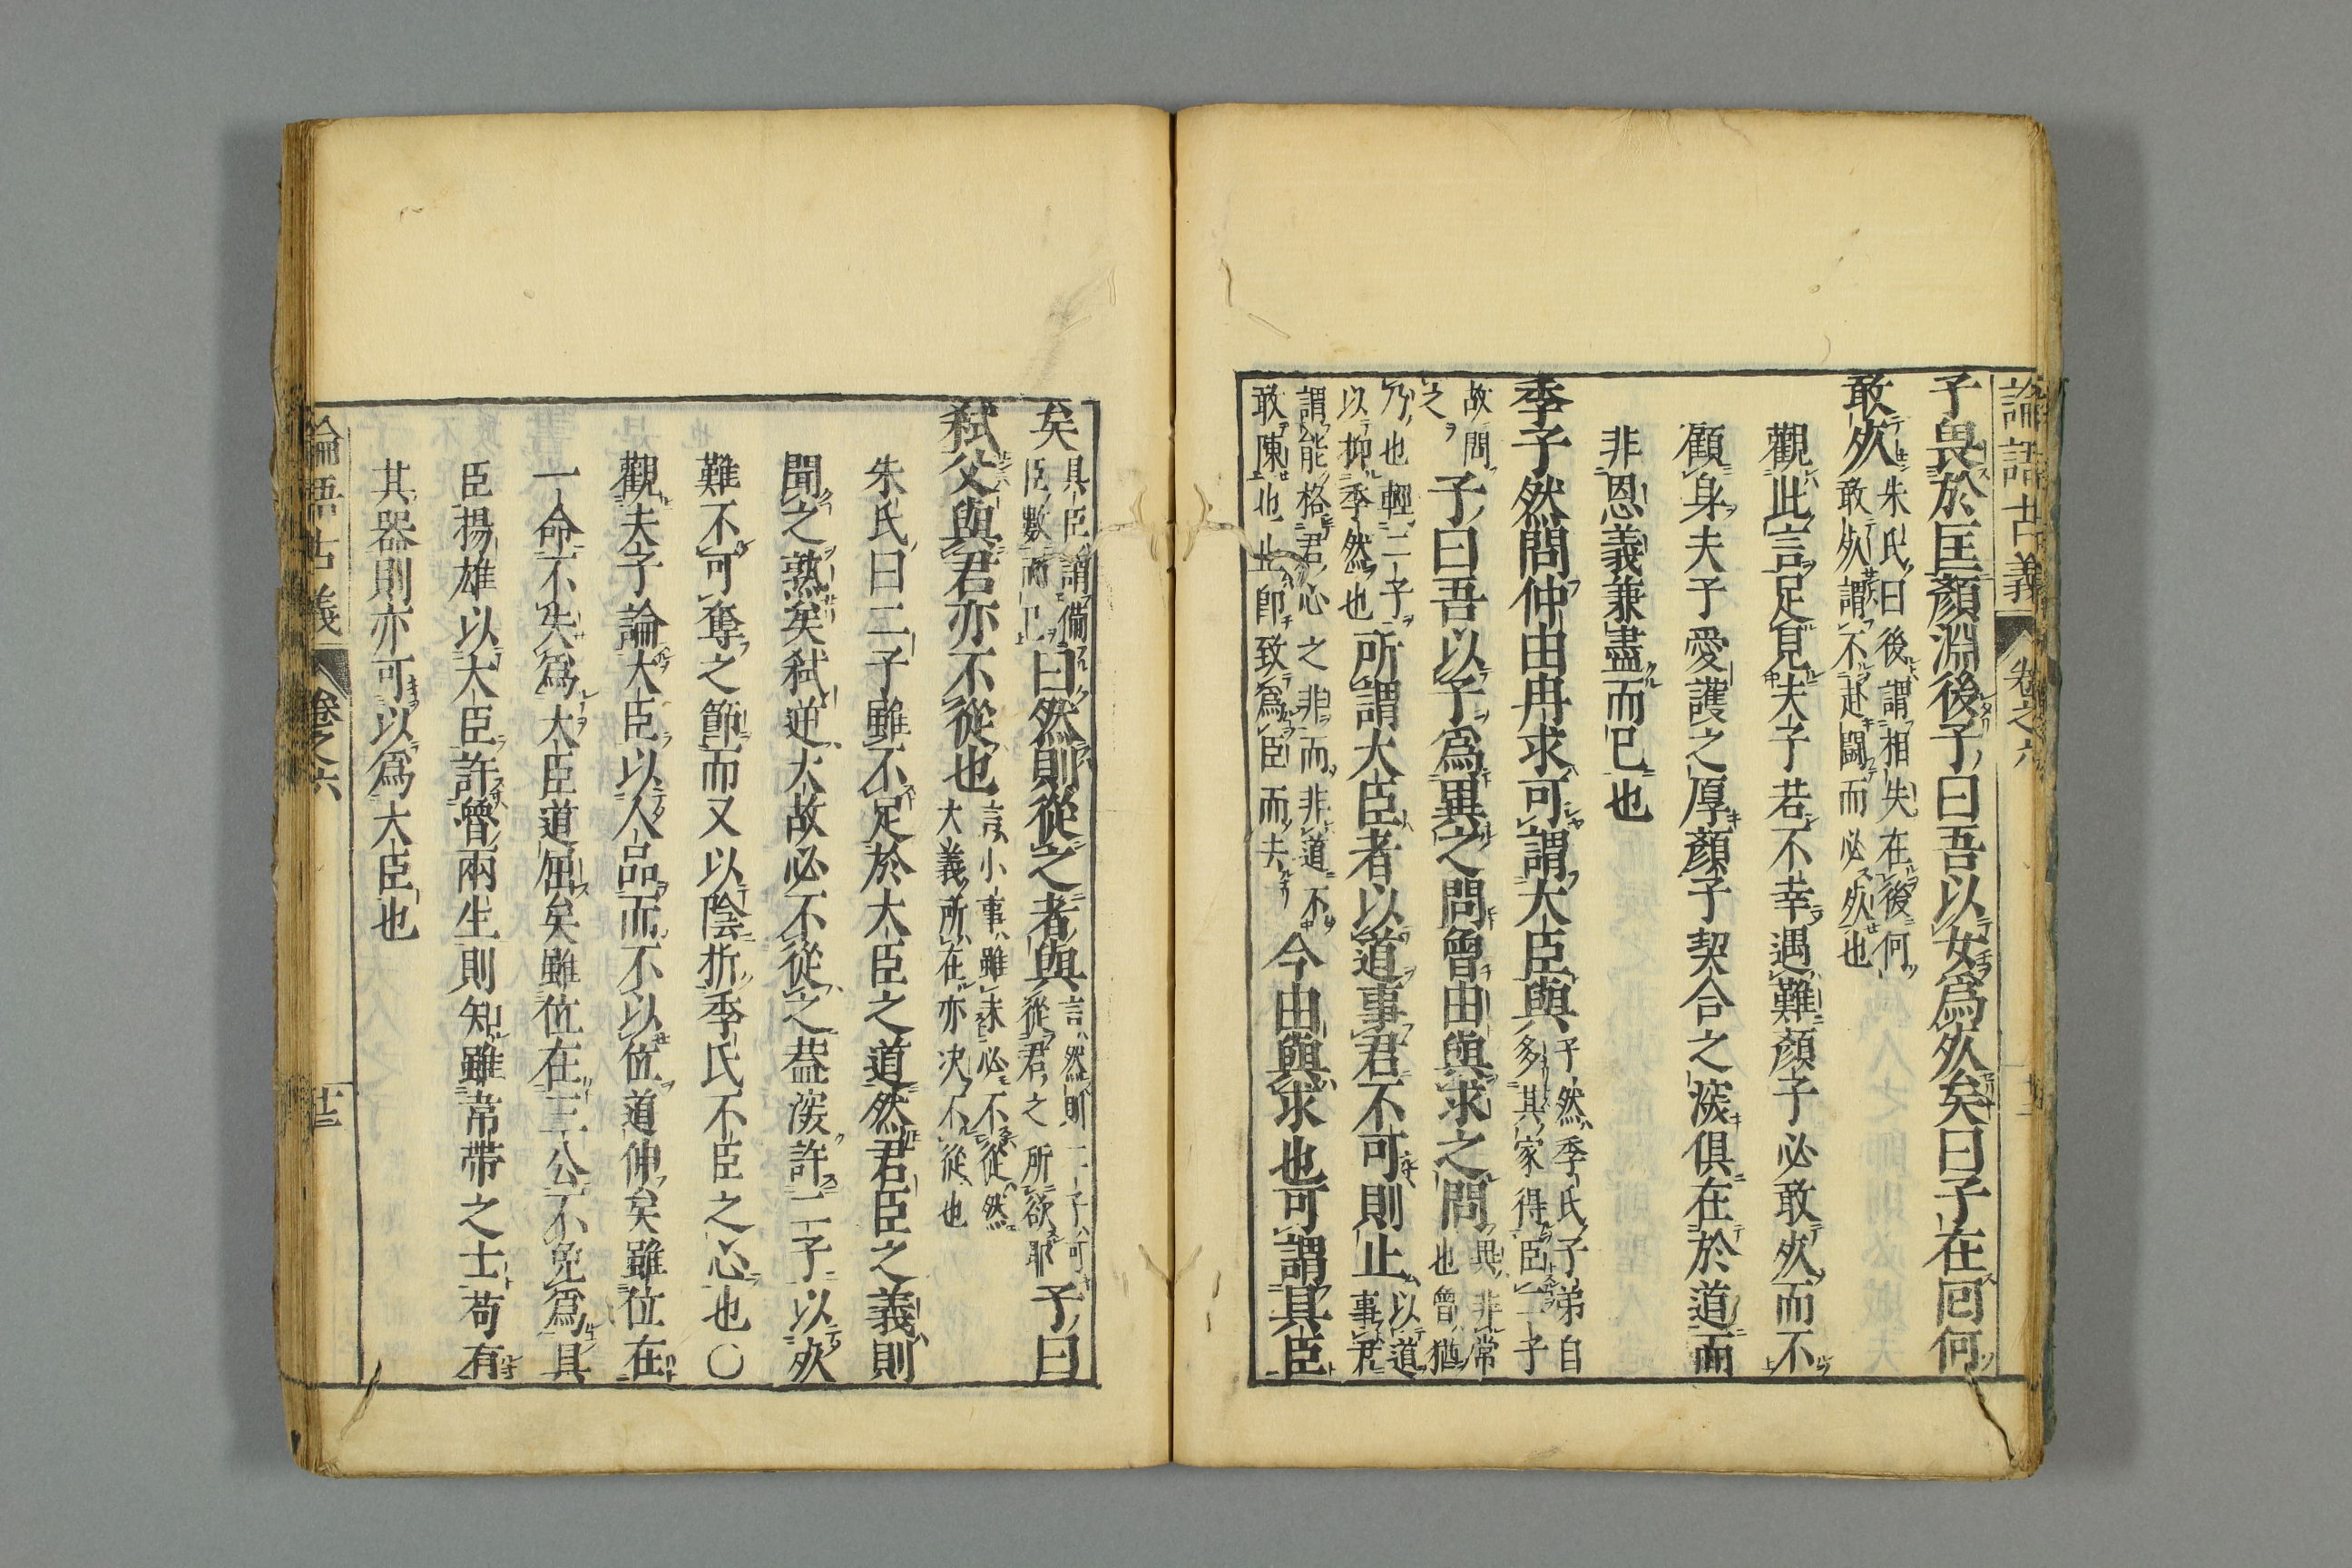 論語古義 卷之六
子畏於匡顏淵後子曰吾以女爲死矣曰子在回何
敢死朱氏曰後謂相失在後何敢死謂不赴鬭而必死也
觀此言足見夫子若不幸遇難顏子必敢死而不
顧身夫子愛護之厚顏子契合之深俱在於道而
非恩義兼盡而已也
季子然問仲由冉求可謂大臣與子然季氏子弟自多其家得臣二子
故問之子曰吾以子爲異之問曾由與求之問異非常也曾猶
乃也輕二子以抑季然也所謂大臣者以道事君不可則止以道事君
謂能格君心之非而非道不敢陳也止即致爲臣而去今由與求也可謂具臣
矣具臣謂備臣數而已曰然則從之者與言然則二子可從君之所欲耶子曰
弑父與君亦不從也言小事雖未必不從然大義所在亦决不從也
朱氏曰二子雖不足於大臣之道然君臣之義則
聞之熟矣弑逆大故必不從之葢深許二子以死
難不可奪之節而又以陰折季氏不臣之心也○
觀夫子論大臣以人品而不以位道伸矣雖位在
一命不失爲大臣道屈矣雖位在三公不免爲具
臣揚雄以大臣許魯兩生則知雖韋帶之士苟有
其器則亦可以爲大臣也
論語古義 卷之六 廿三